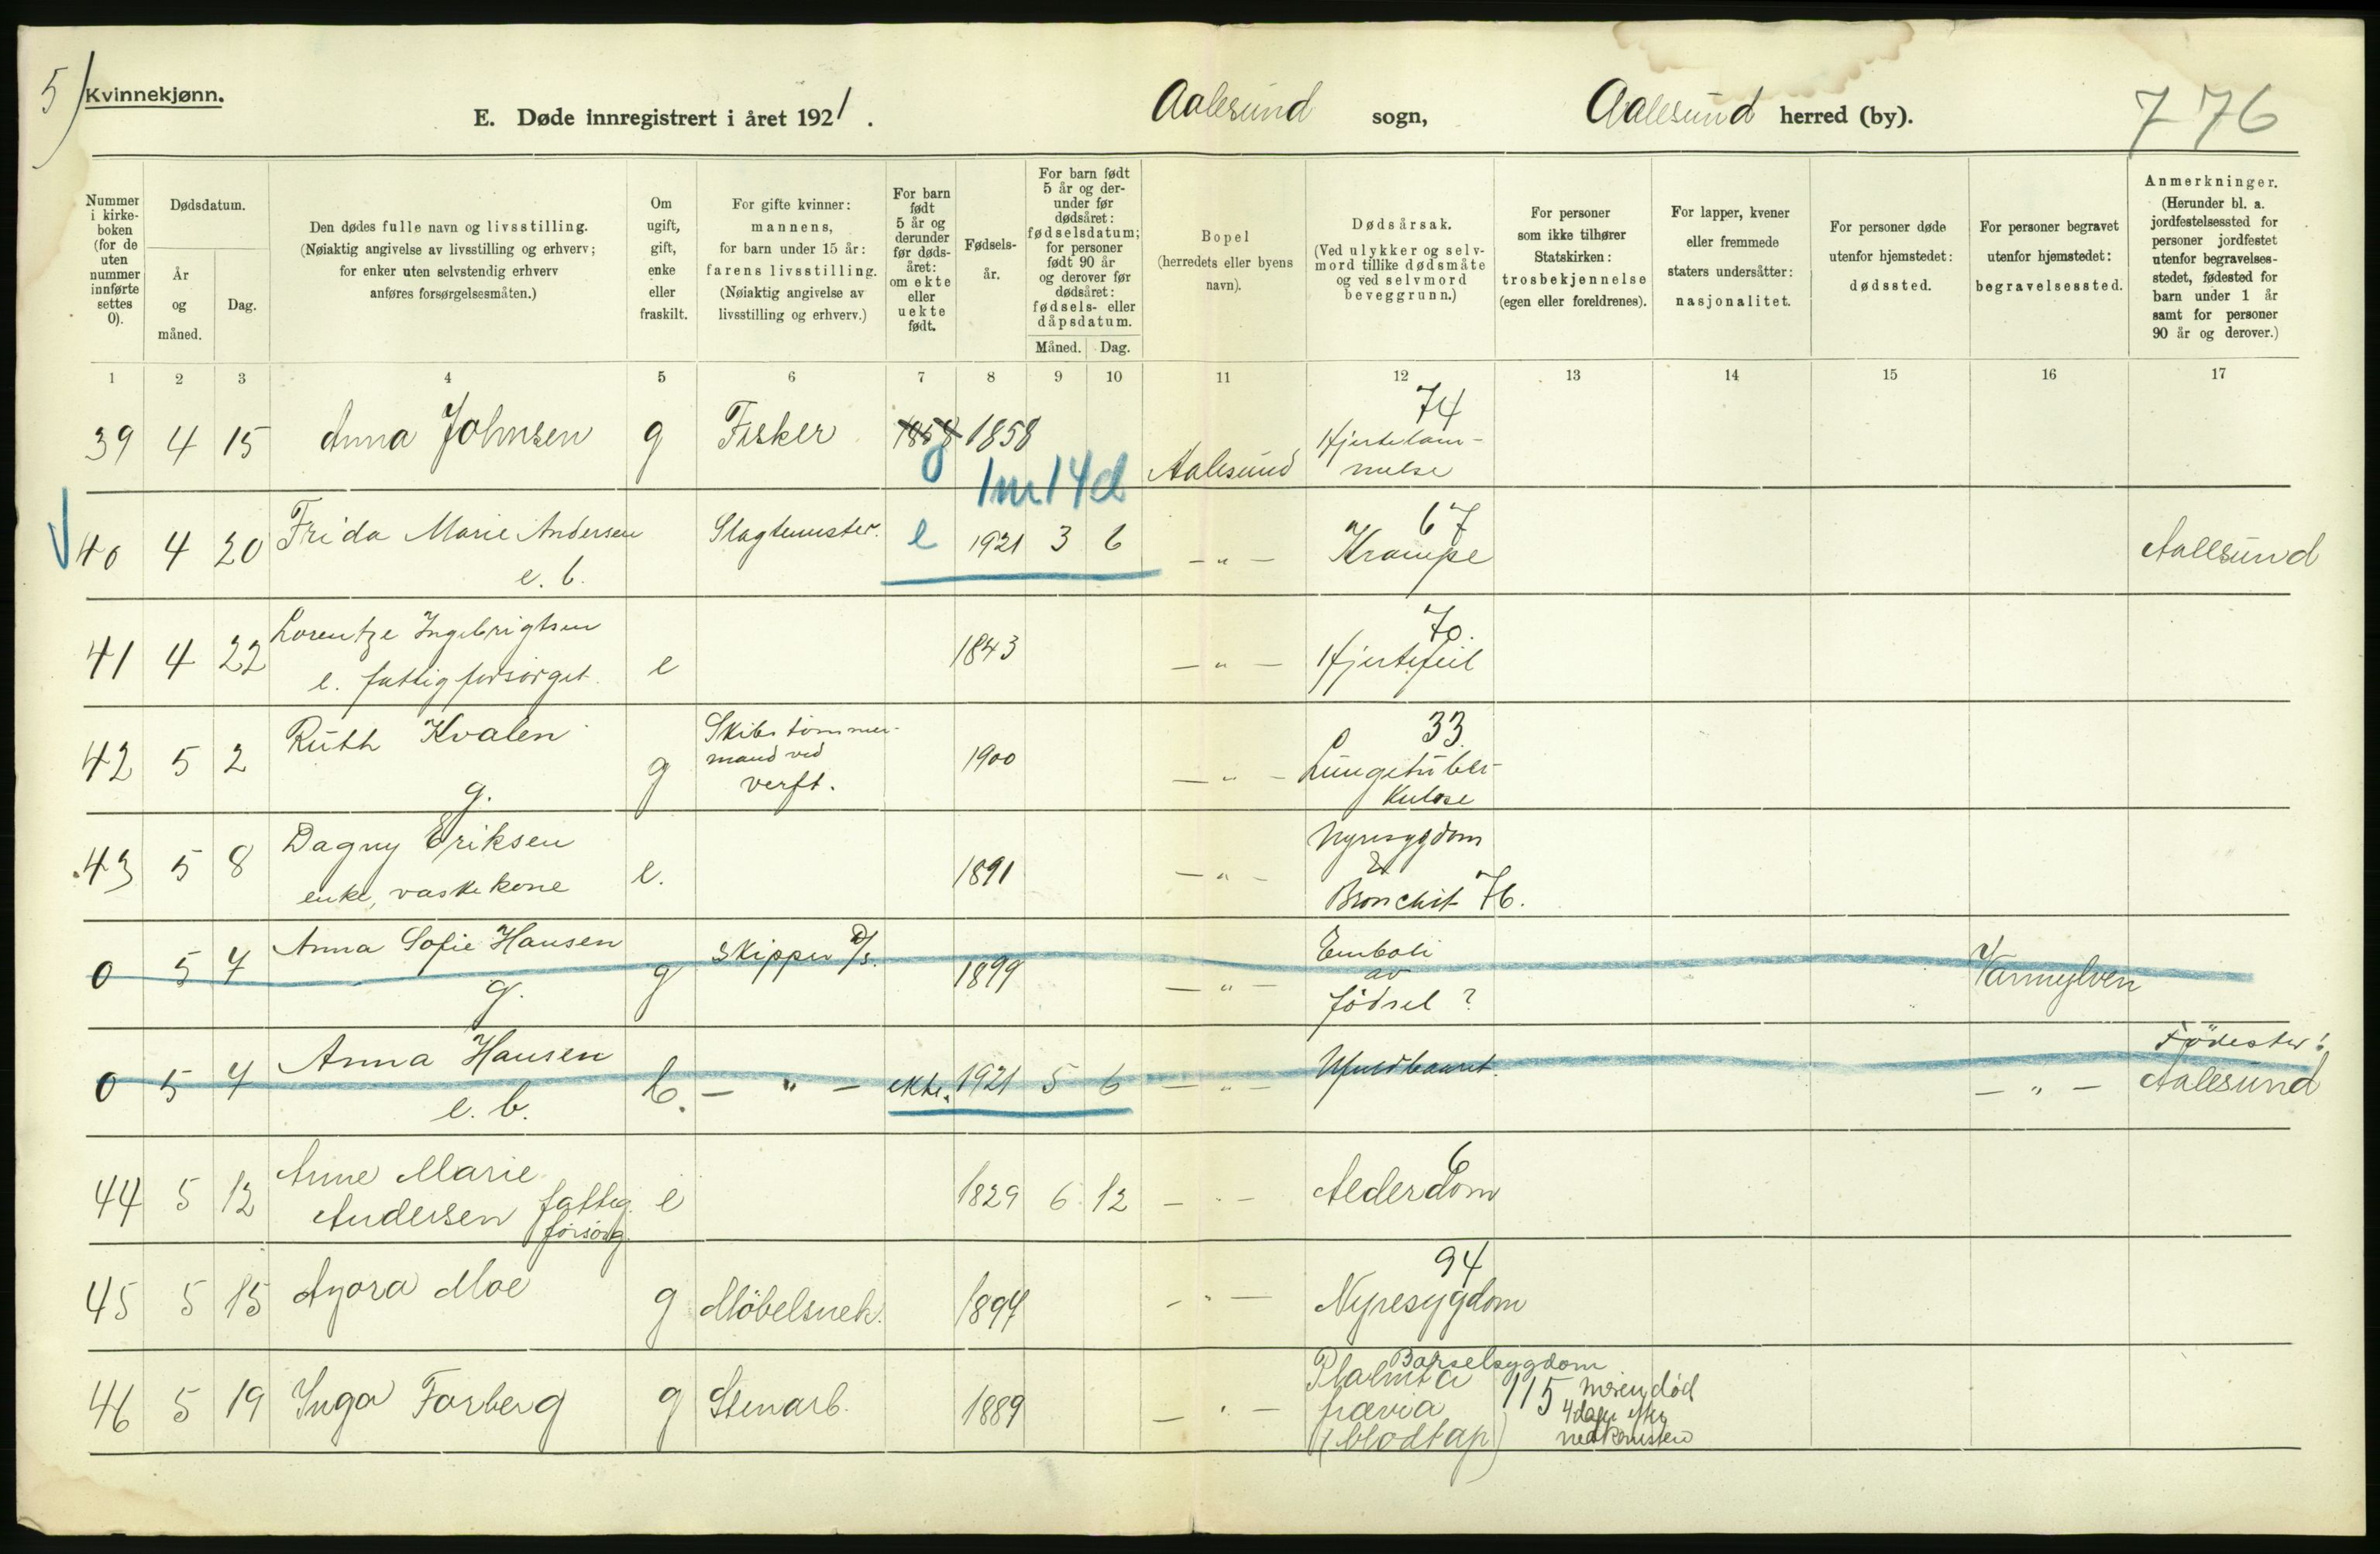 5)
Kvinnekjønn.
E. Døde innregistrert i året 1921.
Aalesund sogn,
Aalesund herred (by).
776
Nummer i kirkeboken (for de uten nummer innførte settes 0).
Dødsdatum.
År og måned.
Dag.
Den dødes fulle navn og livsstilling.
(Nøiaktig angivelse av livsstilling og erhverv;
for enker uten selvstendig erhverv
anføres forsørgelsesmåten.)
Om ugift, gift, enke eller fraskilt.
For gifte kvinner:
mannens,
for barn under 15 år:
farens livsstilling.
(Nøiaktig angivelse av
livsstilling og erhverv.)
For barn født 5 år og derunder før dødsåret: om ekte eller uekte født.
Fødselsår.
For barn født 5 år og derunder før dødsåret: fødselsdatum; for personer født 90 år og derover før dødsåret: fødsels- eller dåpsdatum.
Måned. Dag.
Bopel
(herredets eller byens
navn).
Dødsårsak.
(Ved ulykker og selvmord tillike dødsmåte og ved selvmord beveggrunn.)
For personer
som ikke tilhører
Statskirken:
trosbekjennelse
(egen eller foreldrenes).
For lapper, kvener
eller fremmede
staters undersåtter:
nasjonalitet.
For personer døde
utenfor hjemstedet:
dødssted.
For personer begravet
utenfor hjemstedet:
begravelsessted.
Anmerkninger.
(Herunder bl. a.
jordfestelsessted for
personer jordfestet
utenfor begravelsesstedet, fødested for
barn under 1 år
samt for personer
90 år og derover.)
1 2 3 4 5 6 7 8 9 10 11 12 13 14 15 16 17
39 4 15 Anna Johnsen g Fisker 1858 1858 Aalesund 74 Hjertelam-
melse
1m14d
40 4 20 Frida Marie Andersen Slagtemester. e 1921 3 6 — " — 67 Krampe Aalesund
e. b.
41 4 22 Lorentze Ingebrigtsen e 1843 — " — 70. Hjertefeil
e. fattigforsørget.
42 5 2 Ruth Kvalen g Skibstømmer-
mand ved
verft. 1900 — " — 33. Lungetuber-
kulose
g.
43 5 8 Dagny Eriksen e. 1891 — " — Nyresygdom
&
Bronchit 76.
enke, vaskekone
0 5 7 Anna Sofie Hansen g Skipper D/s. 1899 — " — Emboli
av
fødsel? Vannylven
g.
0 5 7 Anna Hansen b. — " — ekte. 1921 5 6 — " — Ufuldbaaret. — " — Fødested:
Aalesund
e. b.
44 5 12 Anne Marie
Andersen fattig
forsørg. e 1829 6 12 — " — 6 Alderdom
45 5 15 Agora Moe g Möbelsnek. 1897 — " — 94
Nyresygdom
46 5 19 Inga Farberg g Stenarb. 1889 — " — Barselsygdom
Placenta
prævia
(blodtap) 115 moren død
4 dage efter
nedkomsten